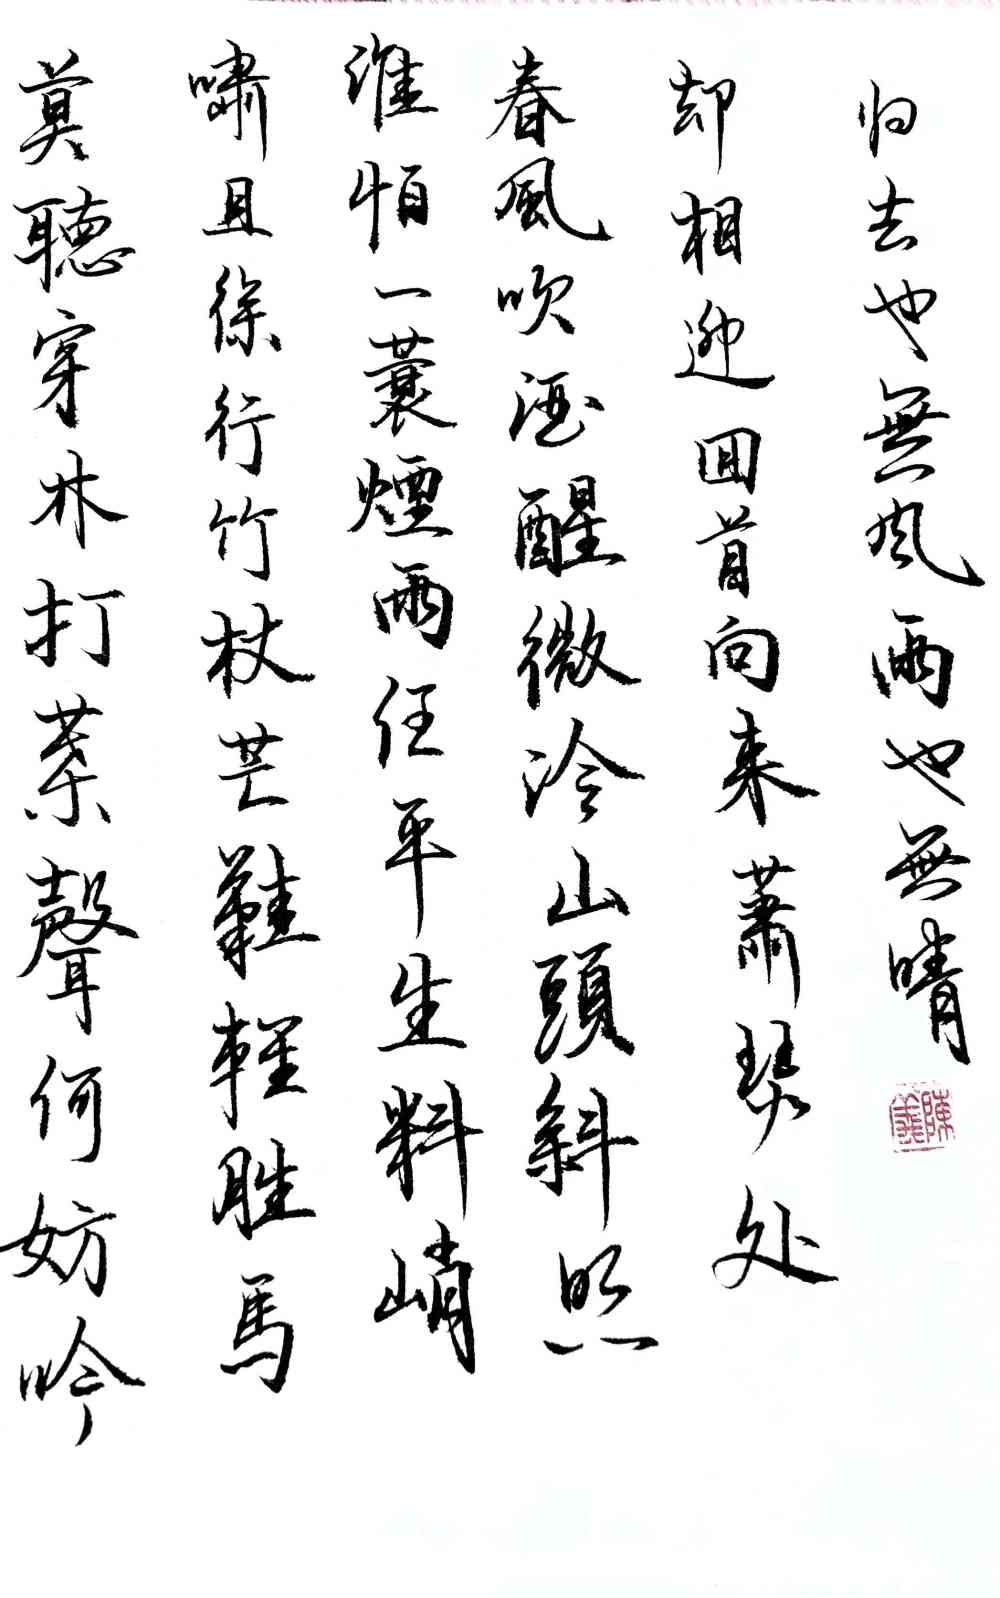 莫聽穿林打葉聲何妨吟
嘯且徐行竹杖芒鞋輕胜馬
谁怕一蓑煙雨任平生料峭
春風吹酒醒微冷山頭斜照
却相迎囬首向来蕭瑟处
归去也無风雨也無晴
陳義